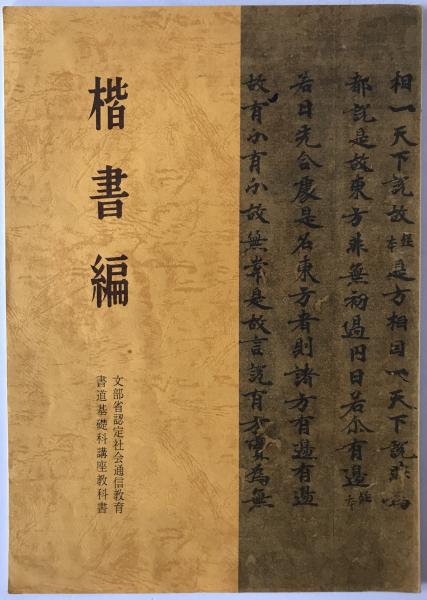 相一天下説故經本是方相因一天下説非為
都説是故東方非無初過円日若尒有邉經本
若日先合處是名東方者則諸方有邉有邉
故有尒有尒故無常是故言説有方實為無
楷書編
文部省認定社会通信教育
書道基礎科講座教科書